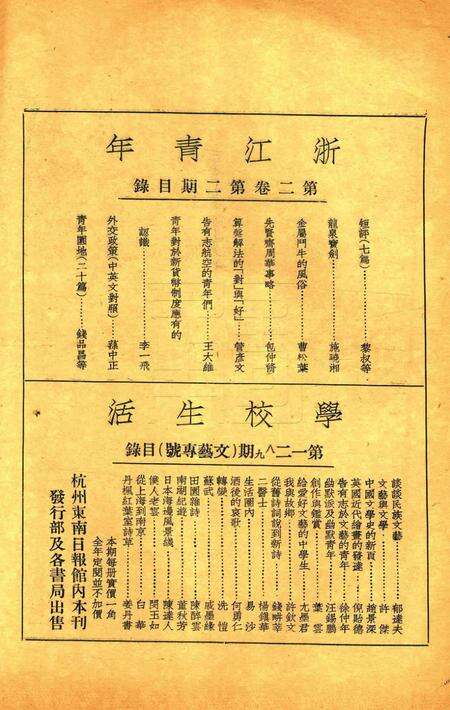 浙江青年
第二卷第二期目錄
短評(七篇)………黎叔等
龍泉寶劍………施曉湘
金屬鬥牛的風俗………曹松葉
先賢齋周華事略………包仲脩
算盤解法的「對」與「好」………管彥文
告有志航空的青年們………王大維
青年對於新貨幣制度應有的
認識………李一飛
外交政策(中英文對照)………蘇中正
青年園地(二十篇)………錢品昌等
學校生活
第一二八九期(文藝專號)目錄
談談民族文藝………郁達夫
文藝與文學………許傑
中國文學史的新頁………趙景深
英國近代繪畫的發達………倪貽德
告有志於文藝的青年………徐仲年
幽默派及幽默青年………汪錫鵬
創作與鑑賞………葉雲
給愛好文藝的中學生………尤墨君
我與故鄉………許欽文
從舊詩詞說到新詩………錢畊莘
二醫士………楊鎮華
生活圈內………易沙
酒後的哀歌………何勇仁
轉變………洗愷
蘇武………戚墨緣
田園雜詩………陳醉雲
南湖紀遊………董秋芳
日本海邊風景綫………陳達人
僕人老雲………閔玉如
從上海到南京………白華
丹楓紅葉室詩草………姜丹書
本期每册實價一角
全年定閱並不加價
杭州東南日報館內本刊
發行部及各書局出售